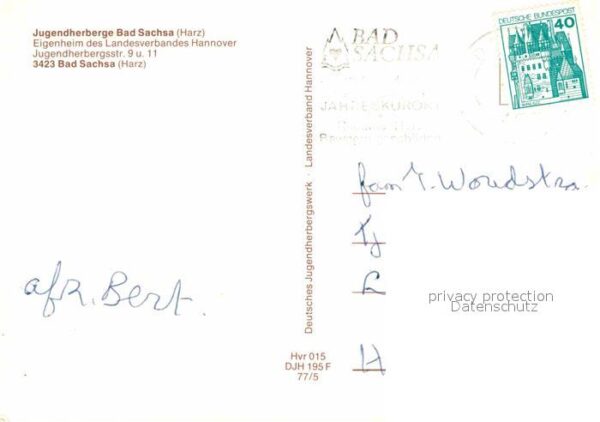 Jugendherberge Bad Sachsa (Harz)
Eigenheim des Landesverbandes Hannover
Jugendherbergsstr. 9 u. 11
3423 Bad Sachsa (Harz)
afz. Bert.
Deutsches Jugendherbergswerk · Landesverband Hannover
Hvr 015
DJH 195 F
77/5
BAD
SACHSA
JAHRESKURORT
DEUTSCHE BUNDESPOST
40
fam
privacy protection
Datenschutz